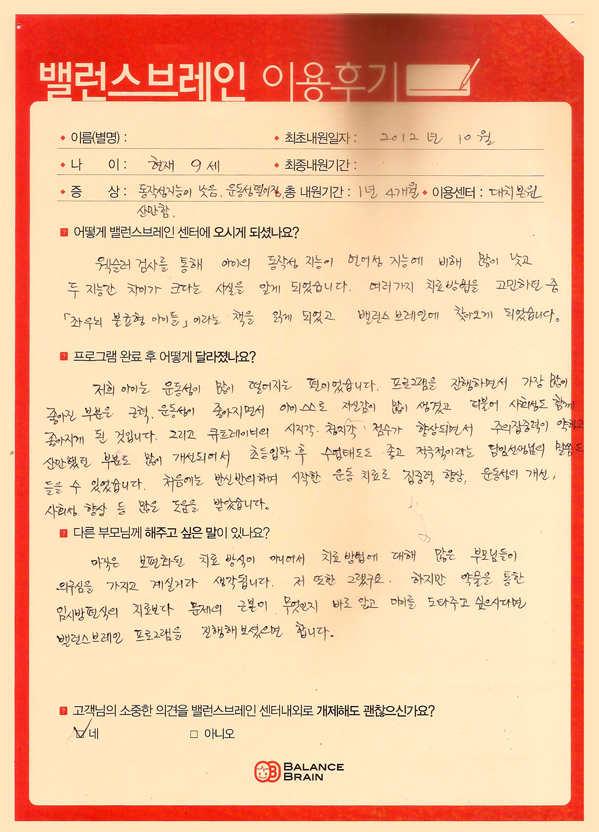 밸런스브레인 이용후기
이름(별명) : 최초내원일자 : 2012년 10월
나 이 : 현재 9세 최종내원기간 :
증 상 : 동작성지능이 낮음, 운동성떨어짐, 총 내원기간 : 1년 4개월 이용센터 : 대치본원
산만함.
어떻게 밸런스브레인 센터에 오시게 되셨나요?
웩슬러 검사를 통해 아이의 동작성 지능이 언어성 지능에 비해 많이 낮고
두 지능간 차이가 크다는 사실을 알게 되었습니다. 여러가지 치료방법을 고민하던 중
「좌우뇌 불균형 아이들」이라는 책을 읽게 되었고 밸런스 브레인에 찾아오게 되었습니다.
프로그램 완료 후 어떻게 달라졌나요?
저희 아이는 운동성이 많이 떨어지는 편이었습니다. 프로그램을 진행하면서 가장 많이
좋아진 부분은 근력, 운동성이 좋아지면서 아이 스스로 자신감이 많이 생겼고 더불어 사회성도 함께
좋아지게 된 것입니다. 그리고 큐브레이터의 시지각, 청지각 점수가 향상되면서 주의집중력이 약하고
산만했던 부분도 많이 개선되어서 초등입학 후 수업태도도 좋고 적극적이라는 담임선생님의 말씀도
들을 수 있었습니다. 처음에는 반신반의하며 시작한 운동 치료로 집중력 향상, 운동성의 개선,
사회성 향상 등 많은 도움을 받았습니다.
다른 부모님께 해주고 싶은 말이 있나요?
아직은 보편화된 치료 방식이 아니어서 치료방법에 대해 많은 부모님들이
의구심을 가지고 계실거라 생각됩니다. 저 또한 그랬구요. 하지만 약물을 통한
임시방편식의 치료보다 문제의 근본이 무엇인지 바로 알고 아이를 도와주고 싶으시다면
밸런스브레인 프로그램을 진행해 보셨으면 합니다.
고객님의 소중한 의견을 밸런스브레인 센터내외로 개제해도 괜찮으신가요?
네 아니오
BALANCE
BRAIN